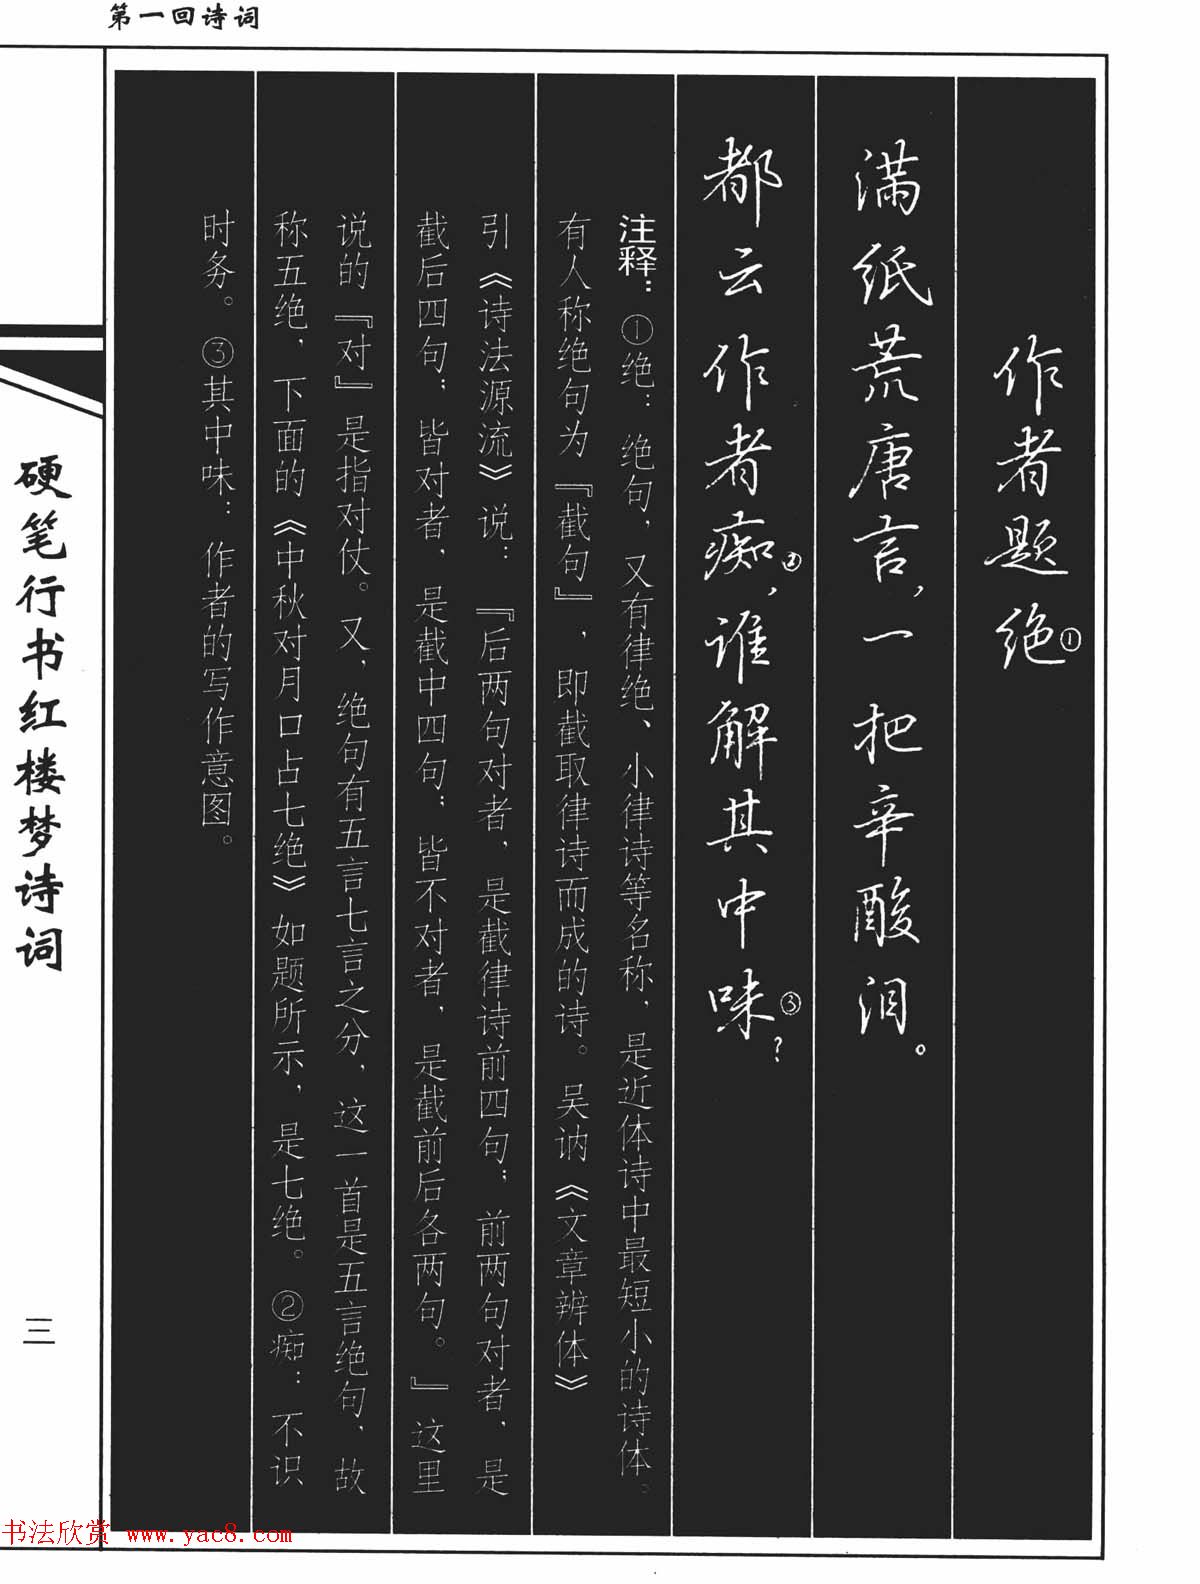 第一回诗词
作者题绝①
满纸荒唐言，一把辛酸泪。
都云作者痴②，谁解其中味③？
注释：①绝：绝句，又有律绝、小律诗等名称，是近体诗中最短小的诗体。
有人称绝句为『截句』，即截取律诗而成的诗。吴讷《文章辨体》
引《诗法源流》说：『后两句对者，是截律诗前四句；前两句对者，是
截后四句；皆对者，是截中四句；皆不对者，是截前后各两句。』这里
说的『对』是指对仗。又，绝句有五言七言之分，这一首是五言绝句，故
称五绝，下面的《中秋对月口占七绝》如题所示，是七绝。②痴：不识
时务。③其中味：作者的写作意图。
硬笔行书红楼梦诗词
三
书法欣赏 www.yac8.com